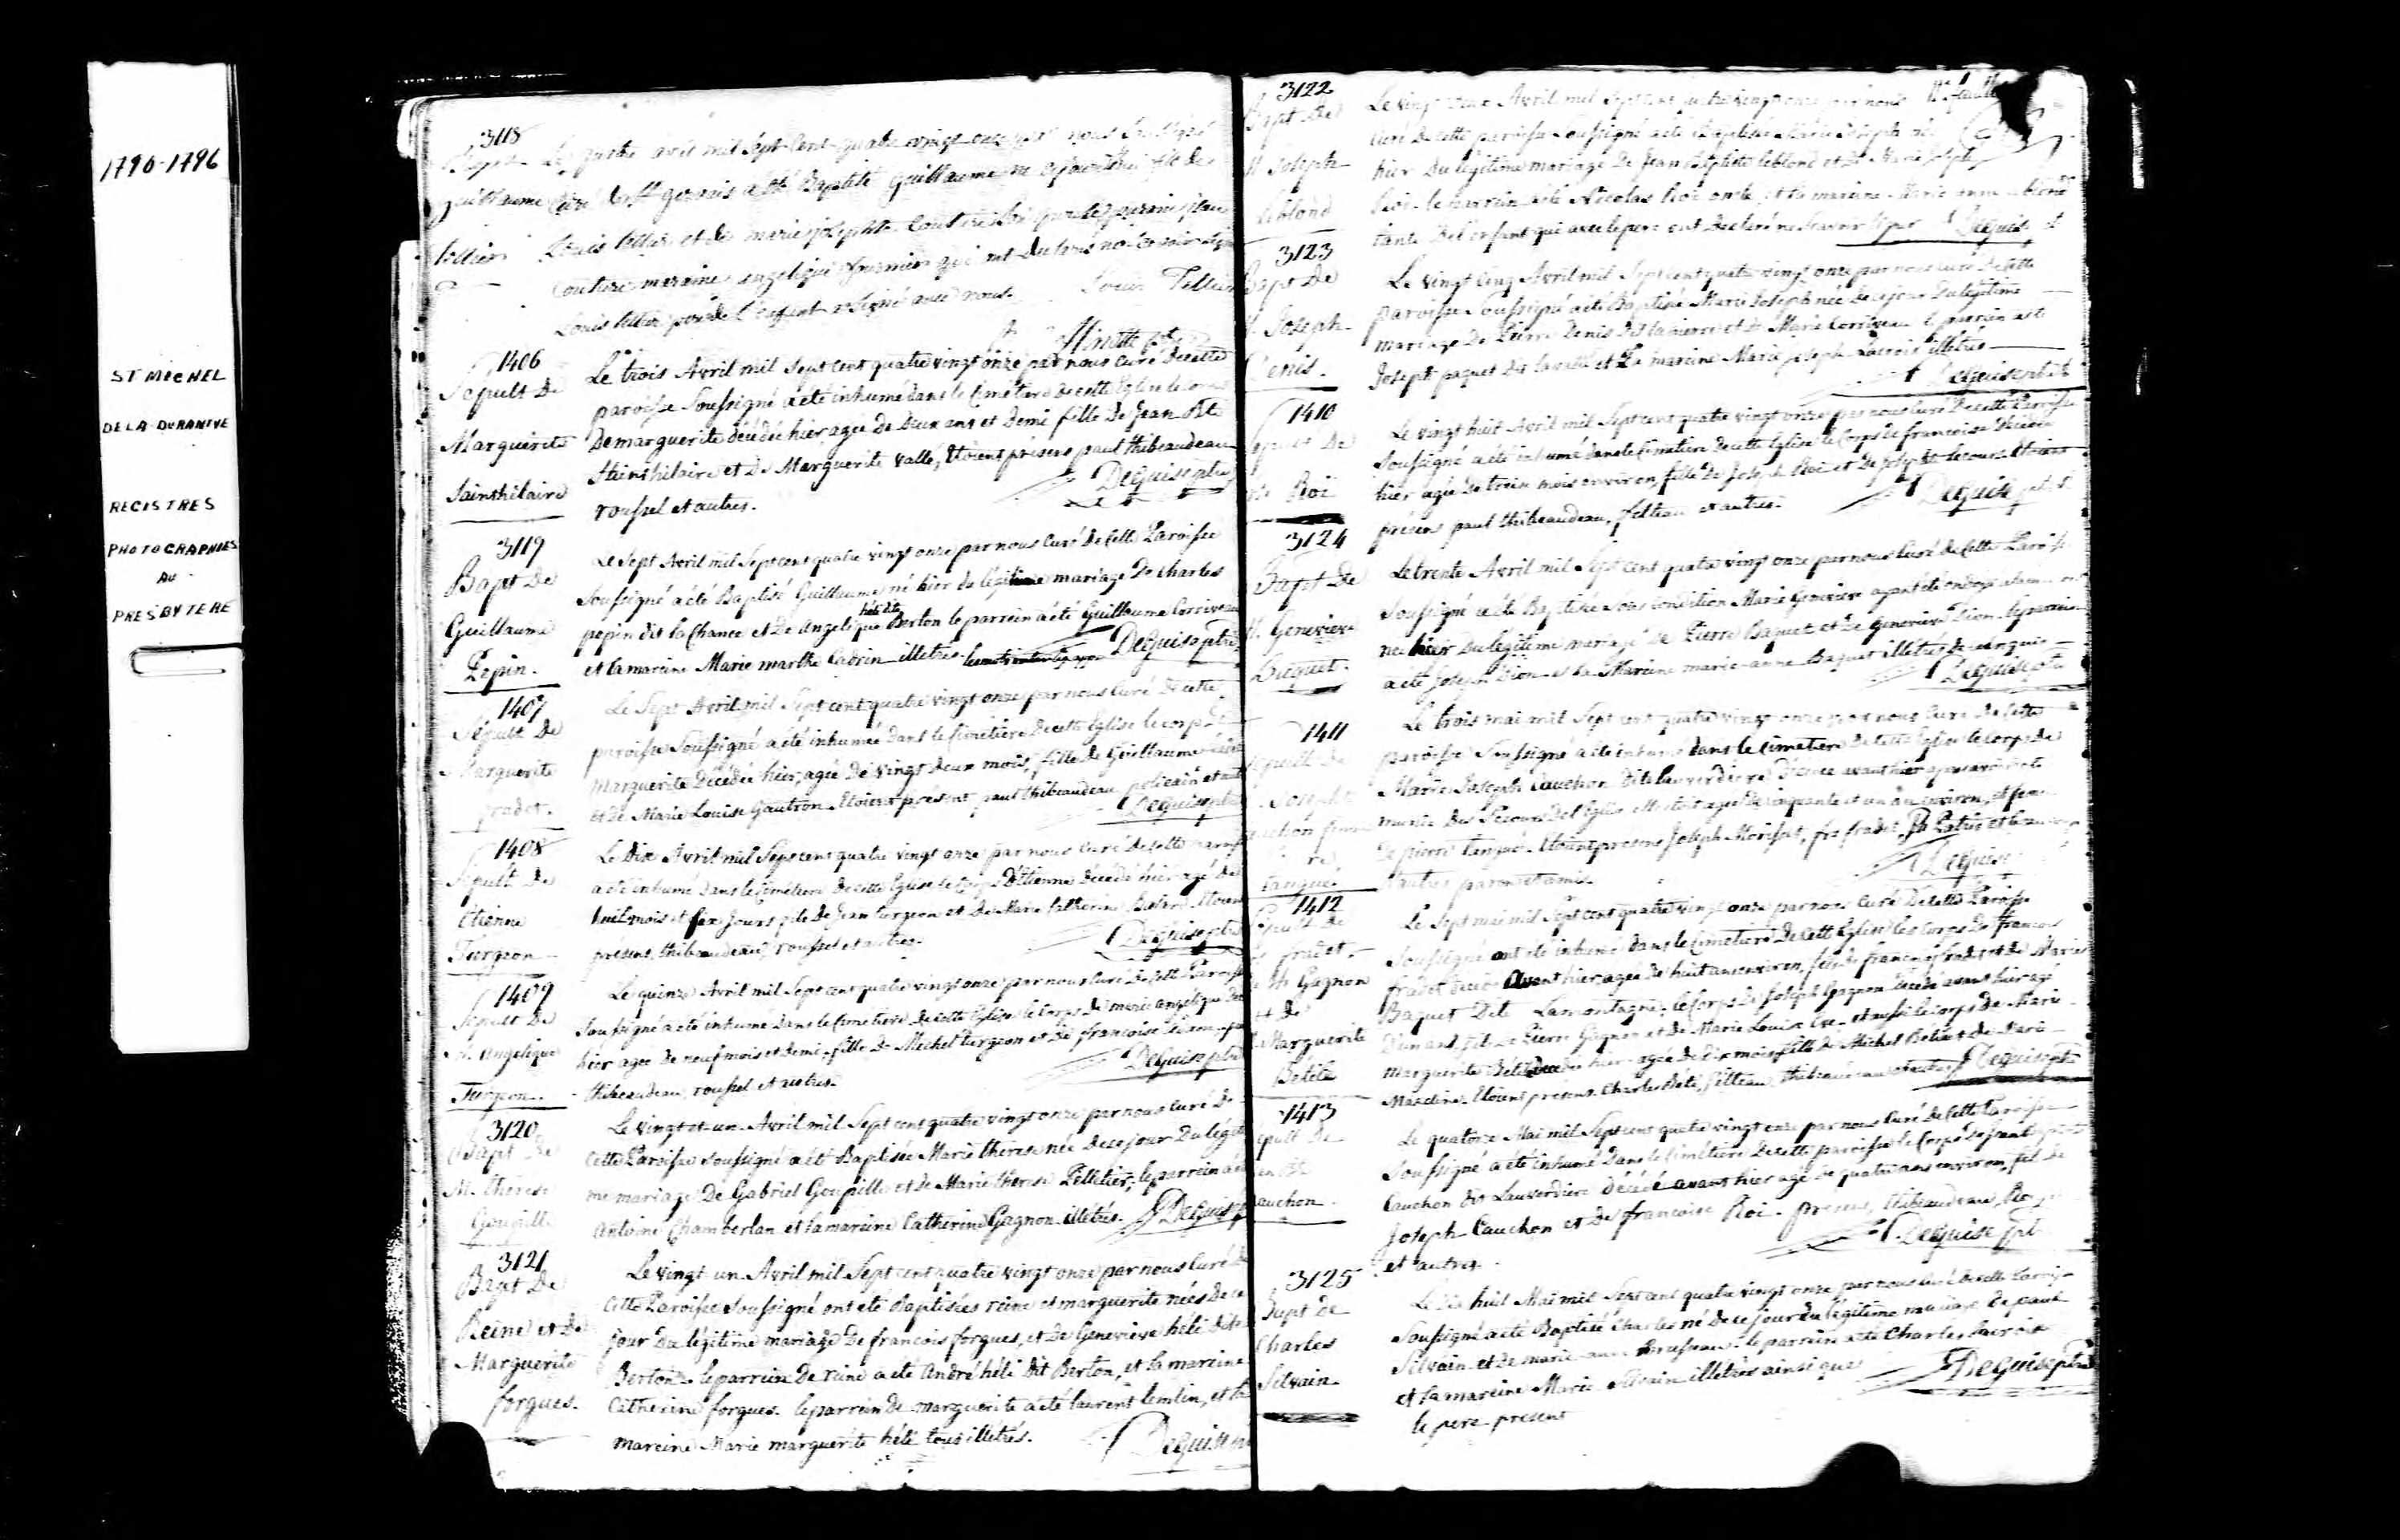 1790-1796
ST MICHEL
DE LA DURANTYE
REGISTRES
PHOTOGRAPHIES
AU
PRESBYTERE
3118
Guillaume
Le quatre avril mil Sept Cent quatre vingt onze par nous Soussigné
Curé de St gervais a été Baptisé Guillaume né
Louis tellier et de marie josephte Couture
Couture maraine angelique fournier qui ont declaré
Louis tellier pere de l'enfant a Signé avec nous. Louis Tellier
1406
Sepult De
Marguerite
Sainthilaire
Le trois Avril mil Sept cent quatre vingt onze par nous Curé de cette
paroisse Soussigné a été inhumé dans le Cimetiere de cette Eglise le corps
De marguerite décédée hier agée de Deux ans et Demi fille De Jean Bte
Sainthilaire et De Marguerite Vallé, Etoient présens paul thibeaudeau
roussel et autres. Deguise ptre
3119
Bapt De
Guillaume
Pepin.
Le Sept Avril mil Sept cent quatre vingt onze par nous Curé de Cette Paroisse
Soussigné a été Baptisé Guillaume né hier du légitime mariage De Charles
pepin dit la Chance et De angelique Berton le parrein a été Guillaume Corriveau
et la mareine Marie marthe Cadrin illetres. Deguise ptre
1407
Sépult De
Marguerite
fradet.
Le Sept Avril mil Sept cent quatre vingt onze par nous Curé De cette
paroisse Soussigné a été inhumée dans le Cimetiere De cette Eglise le corps De
Marguerite Décédée hier, agée De vingt deux mois, fille de Guillaume
et De Marie Louise Gautron Etoient present paul thibeaudeau et
Deguise ptre
1408
Sépult De
Etienne
Turgeon
Le Dix Avril mil Sept cent quatre vingt onze par nous Curé De cette
a été inhumé Dans le Cimetiere De cette Eglise le Corps D'Etienne décédé hier agé de
huit mois et six Jours fils De Jean turgeon et De Marie Catherine
présens, thibeaudeau, roussel et autres. Deguise ptre
1409
Sépult De
M. Angelique
Turgeon.
Le quinze Avril mil Sept cent quatre vingt onze par nous Curé De cette Paroisse
Soussigné a été inhumé dans le Cimetiere De cette Eglise le Corps De marie angelique
hier agée De neuf mois et demi, fille De Michel turgeon et De françoise
thibeaudeau, roussel et autres. Deguise ptre
3120
Bapt De
M. Therese
Goupille
Le vingt et un Avril mil Sept cent quatre vingt onze par nous Curé De
cette Paroisse soussigné a été Baptisée Marie therese née de ce jour Du legiti
me mariage De Gabriel Goupille et de Marie therese Pelletier, le parrein a été
Antoine Chamberlan et la mareine Catherine Gagnon illetrés. Deguise
3121
Bapt De
Reine et De
Marguerite
forgues.
Le vingt un Avril mil Sept cent quatre vingt onze par nous Curé De
Cette Paroisse Soussigné ont été Baptisées reine et marguerite nées De ce
jour Du légitime mariage De francois forgues, et De Genevieve héli Dite
Berton. le parrein De reine a eté André héli dit Berton, et la mareine
Catherine forgues. le parrein de marguerite a été laurent lemlin, et la
mareine Marie marguerite héli tous illétrés. Deguise
3122
Bapt De
M Joseph
leblond
Le vingt Avril mil Sept cent quatre vingt onze par nous
Curé De cette paroisse Soussigné a été Baptisée Marie Joseph née
hier Du légitime mariage De Jean Baptiste leblond et De Marie Joseph
Roi. le parrein a été Nicolas Roi oncle et la mareine Marie anne leblond
tante De l'enfant qui avec le pere ont Declaré ne Savoir Signer Deguise
3123
Bapt De
M. Joseph
Denis.
Le vingt cinq Avril mil Sept cent quatre vingt onze par nous Curé De Cette
paroisse Soussigné a été Baptisée Marie Joseph née De ce jour Du légitime
mariage De Pierre Denis Dit lapierre et De Marie Corriveau le parrein a été
Joseph paquet dit lavallé et La mareine Marie joseph Lacroix illétrés
Deguise ptre
1410
Roi
Le vingt huit Avril mil Sept cent quatre vingt onze par nous Curé De cette Paroisse
Soussigné a été inhumé dans le Cimetiere De cette Eglise le Corps De francoise Décédée
hier agée De treize mois environ fille De Joseph Roi et De Josephte lecours Etoient
présens paul thibeaudeau, felteau et autres. Deguise ptre
3124
Bapt De
M. Genevieve
Baquet.
Le trente Avril mil Sept cent quatre vingt onze par nous Curé De Cette Paroisse
Soussigné a été Baptisée sous condition Marie Genevieve ayant été ondoyé
née hier Du légitime mariage De Pierre Baquet et De Genevieve Dion. le parrein
a été Joseph Dion et La Mareine marie anne Baquet illétrés
Deguise ptre
1411
Tanguai
Le trois mai mil Sept cent quatre vingt onze par nous Curé De Cette
paroisse Soussigné a été inhumé dans le Cimetiere De cette Eglise le Corps De
Marie Joseph Cauchon dite lauverdiere décédée avant hier
munie Des Secours De l'Eglise agée De cinquante et un an environ, et femme
De pierre Tanguai. Etoient presens Joseph Morisset, frs fradet,
autres parens et amis. Deguise
1412
Sépult De
fradet.
Gagnon
et de
Marguerite
Belite
Le Sept mai mil Sept cent quatre vingt onze par nous Curé De cette Paroisse
Soussigné ont été inhumé dans le Cimetiere De Cette Eglise les Corps De francois
fradet Décédé avant hier agé De huit ans environ, fils De francois fradet et De Marie
Baquet Dite Lamontagne; le Corps De Joseph Gagnon Décédé avant hier agé
D'un an, fils De Pierre Gagnon et De Marie Louise et aussi le corps De Marie
Marguerite Décédée hier agée De Dix mois fille De Michel et De Marie
Etoient présens Charles felteau, thibeaudeau et autres Deguise ptre
1413
Cauchon.
Le quatorze Mai mil Sept cent quatre vingt onze par nous Curé De Cette Paroisse
Soussigné a été inhumé Dans le Cimétiere De cette paroisse le Corps De Jean Baptiste
Cauchon dit Lauverdiere Décédé avant hier agé De quatre ans environ, fils De
Joseph Cauchon et De francoise Roi. presens, thibeaudeau,
et autres. Deguise ptre
3125
Bapt De
Charles
Silvain.
Le Dix huit Mai mil Sept cent quatre vingt onze par nous Curé De cette Paroisse
Soussigné a été Baptisé Charles né De ce jour Du légitime mariage De paul
Silvain et De marie anne le parrein a été Charles lacroix
et la mareine Marie Silvain illétrés ainsi que Deguise ptre
le pere present